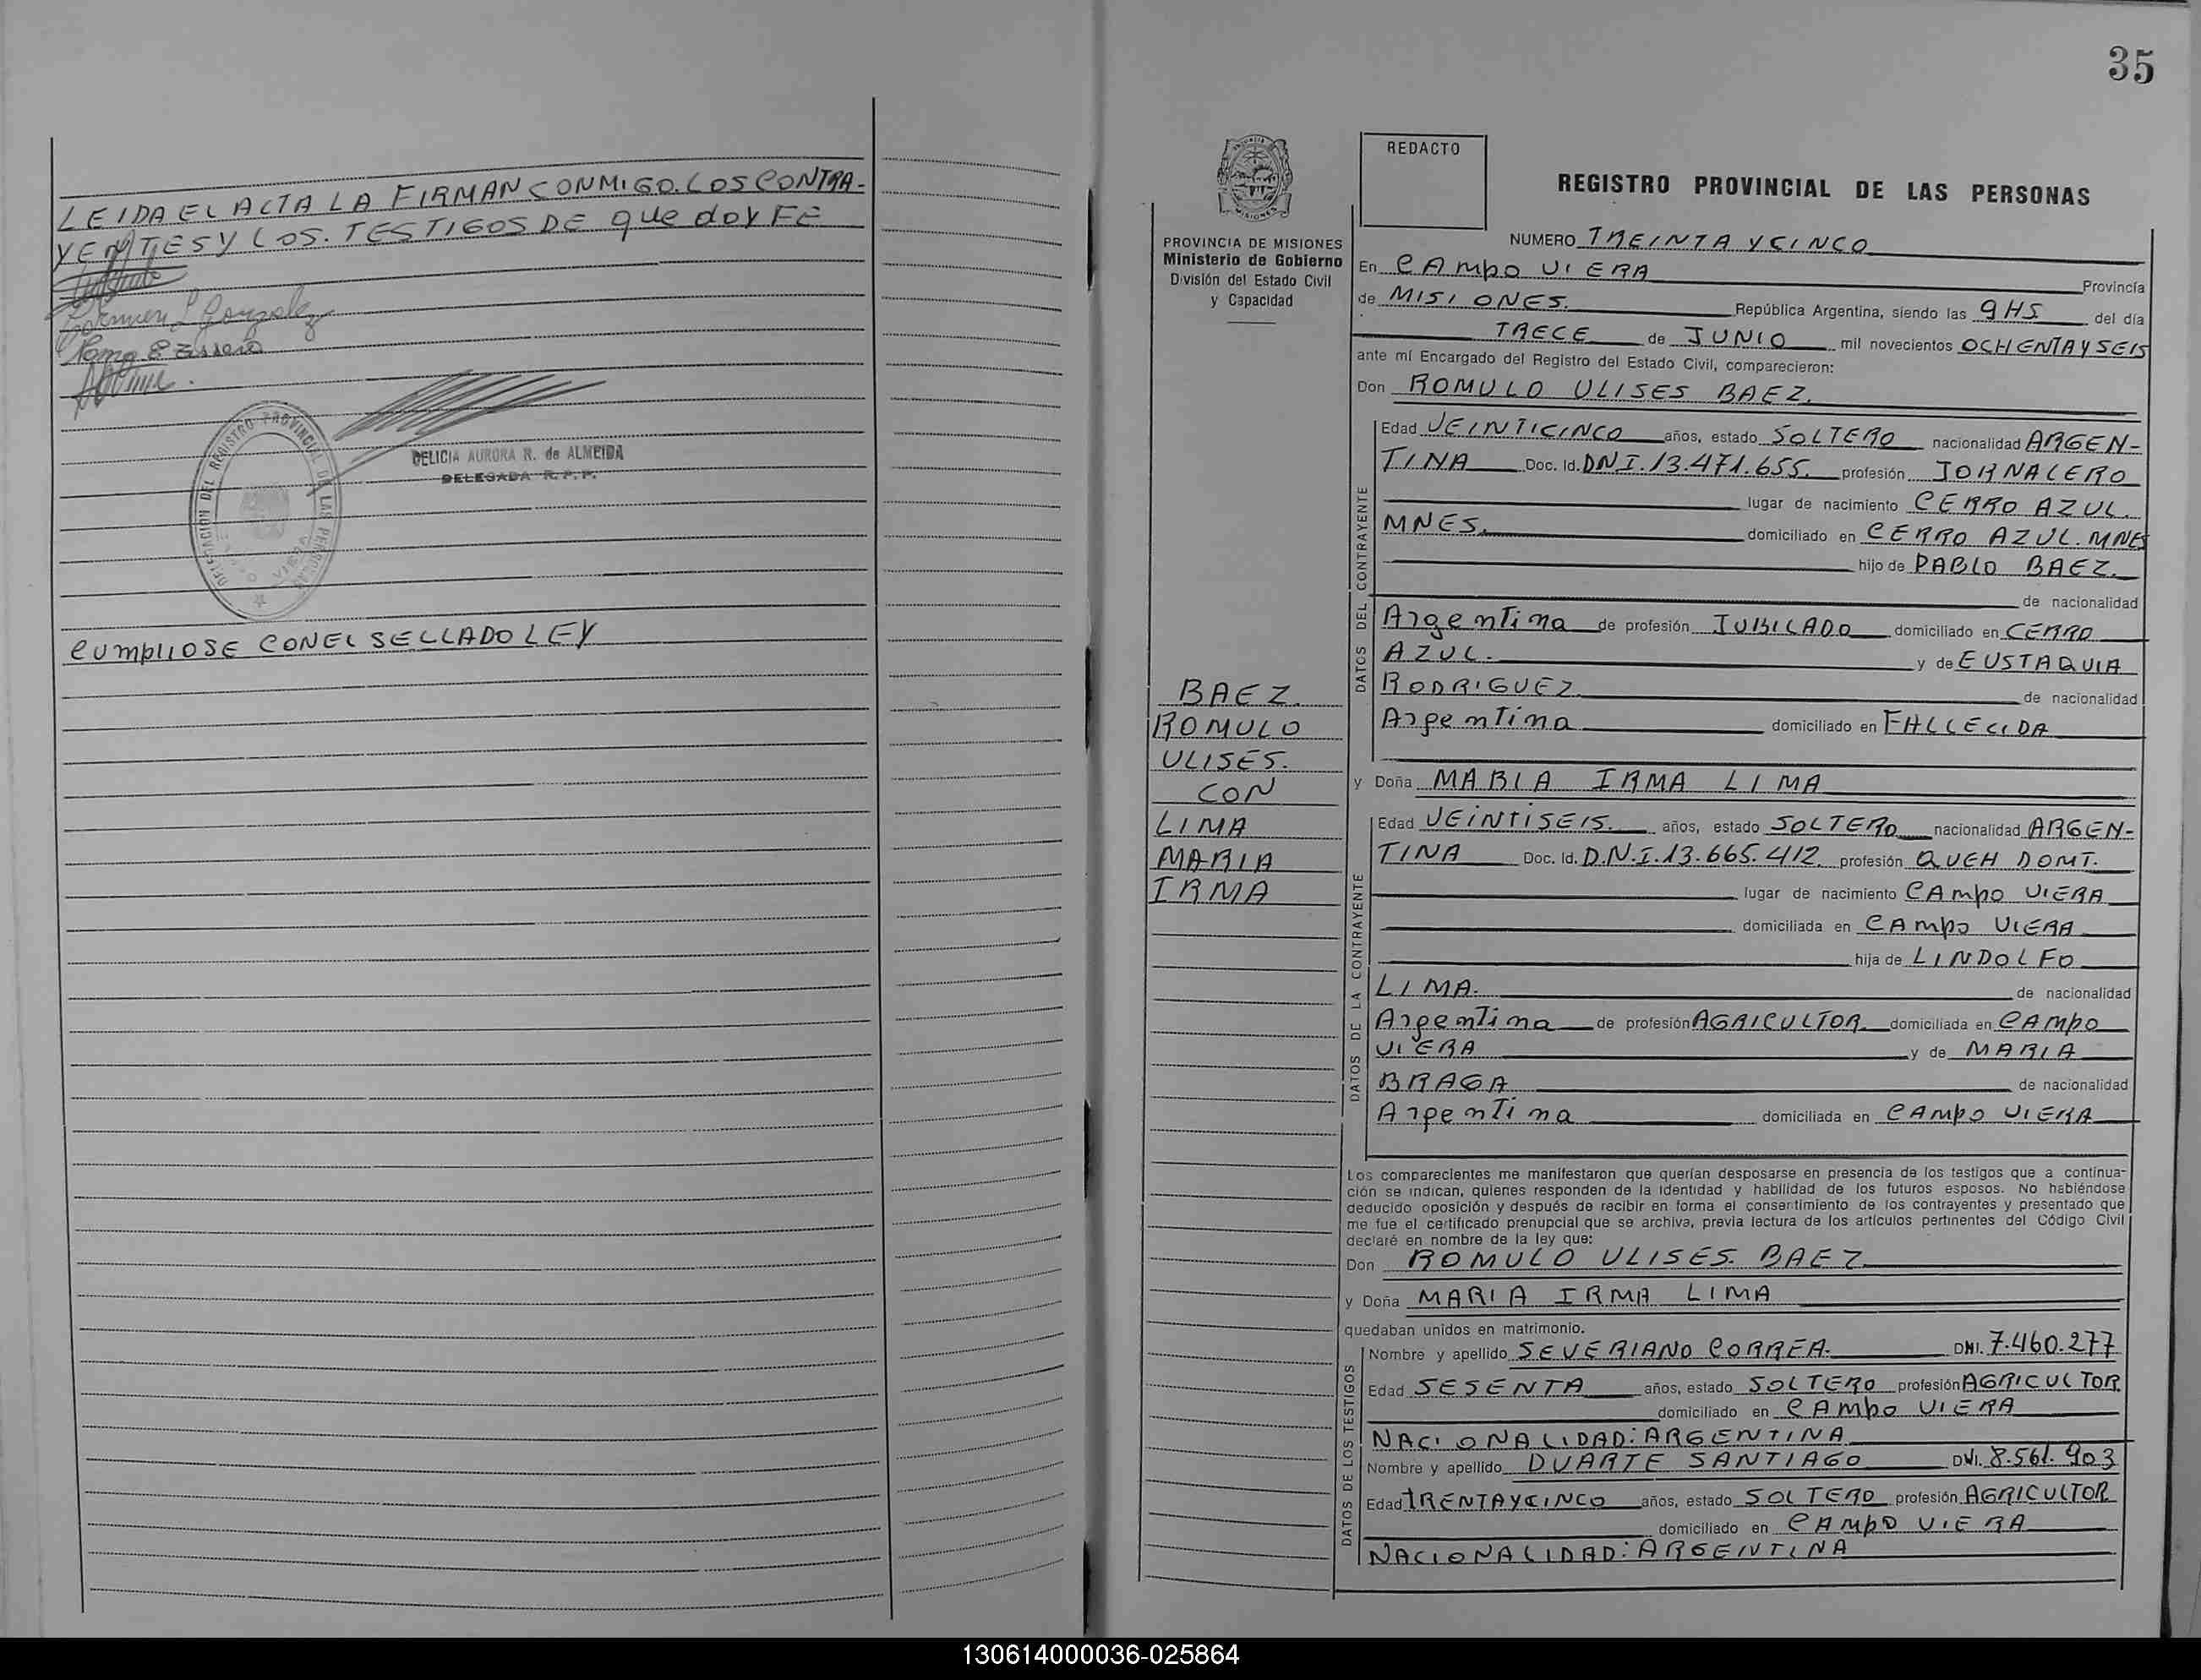 LEIDA EL ACTA LA FIRMAN CONMIGO. LOS CONTRA-
YENTES Y LOS. TESTIGOS DE que doy FE
Carmen L Gonzalez
DELEGACION DEL REGISTRO PROVINCIAL DE LAS PERSONAS
DELICIA AURORA R. de ALMEIDA
DELEGADA R.P.P.
CUMPLIOSE CON EL SELLADO LEY
35
REDACTO
REGISTRO PROVINCIAL DE LAS PERSONAS
MISIONES
PROVINCIA DE MISIONES
Ministerio de Gobierno
División del Estado Civil
y Capacidad
BAEZ.
ROMULO
ULISES.
CON
LIMA
MARIA
IRMA
NUMERO TREINTA Y CINCO
En CAMPO VIERA Provincia
de MISIONES. República Argentina, siendo las 9 HS del día
TRECE de JUNIO mil novecientos OCHENTA Y SEIS
ante mí Encargado del Registro del Estado Civil, comparecieron:
Don ROMULO ULISES BAEZ.
DATOS DEL CONTRAYENTE
Edad VEINTICINCO años, estado SOLTERO nacionalidad ARGEN-
TINA Doc. Id. DNI.13.471.655. profesión JORNALERO
lugar de nacimiento CERRO AZUL.
MNES. domiciliado en CERRO AZUL. MNES
hijo de PABLO BAEZ.
de nacionalidad
Argentina de profesión JUBILADO domiciliado en CERRO
AZUL. y de EUSTAQUIA
RODRIGUEZ de nacionalidad
Argentina domiciliado en FALLECIDA
y Doña MARIA IRMA LIMA
DATOS DE LA CONTRAYENTE
Edad VEINTISEIS. años, estado SOLTERO nacionalidad ARGEN-
TINA Doc. Id. D.N.I.13.665.412 profesión QUEH DOMT.
lugar de nacimiento CAMPO VIERA
domiciliada en CAMPO VIERA
hija de LINDOLFO
LIMA. de nacionalidad
Argentina de profesión AGRICULTOR domiciliada en CAMPO
VIERA y de MARIA
BRAGA de nacionalidad
Argentina domiciliada en CAMPO VIERA
Los comparecientes me manifestaron que querían desposarse en presencia de los testigos que a continua-
ción se indican, quienes responden de la identidad y habilidad de los futuros esposos. No habiéndose
deducido oposición y después de recibir en forma el consentimiento de los contrayentes y presentado que
me fue el certificado prenupcial que se archiva, previa lectura de los artículos pertinentes del Código Civil
declaré en nombre de la ley que:
Don ROMULO ULISES. BAEZ
y Doña MARIA IRMA LIMA
quedaban unidos en matrimonio.
DATOS DE LOS TESTIGOS
Nombre y apellido SEVERIANO CORREA. DNI. 7.460.277
Edad SESENTA años, estado SOLTERO profesión AGRICULTOR
domiciliado en CAMPO VIERA
NACIONALIDAD: ARGENTINA
Nombre y apellido DUARTE SANTIAGO DNI. 8.561.903
Edad TRENTA Y CINCO años, estado SOLTERO profesión AGRICULTOR
domiciliado en CAMPO VIERA
NACIONALIDAD: ARGENTINA
130614000036-025864